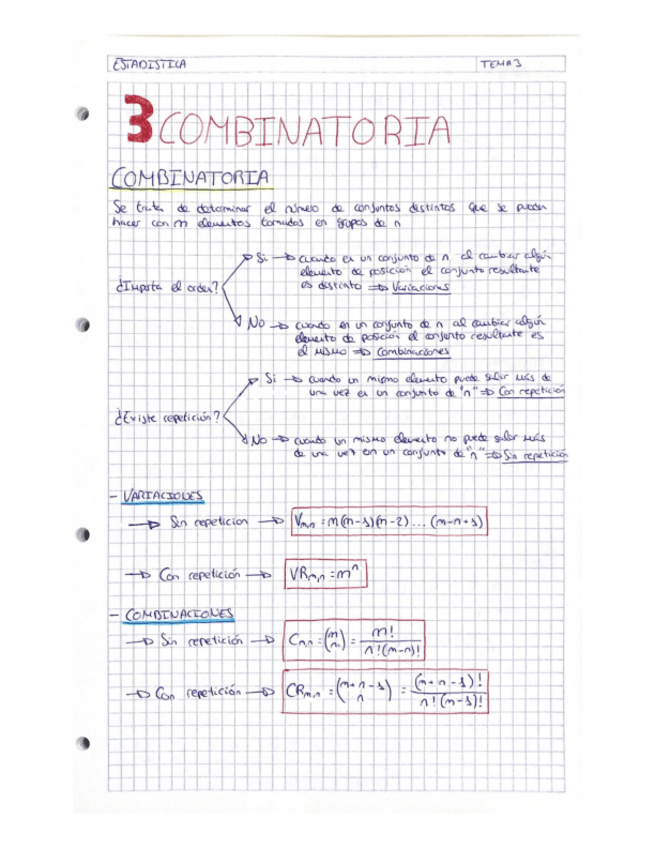 ESTADISTICA
TEMA 3
3 COMBINATORIA
COMBINATORIA
Se trata de determinar el número de conjuntos distintos que se pueden
hacer con m elementos tomados en grupos de n
¿Importa el orden?
Si → cuando en un conjunto de n al cambiar algún
elemento de posición el conjunto resultante
es distinto ⇒ Variaciones
No → cuando en un conjunto de n al cambiar algún
elemento de posición el conjunto resultante es
el mismo ⇒ Combinaciones
¿Existe repetición?
Si → cuando un mismo elemento puede salir más de
una vez en un conjunto de "n" ⇒ Con repetición
No → cuando un mismo elemento no puede salir más
de una vez en un conjunto de "n" ⇒ Sin repetición
- VARIACIONES
→ Sin repeticion → Vm,n = m(m-1)(m-2)...(m-n+1)
→ Con repetición → VRm,n = m^n
- COMBINACIONES
→ Sin repetición → Cm,n = (m n) = m! / n!(m-n)!
→ Con repetición → CRm,n = (m+n-1 n) = (m+n-1)! / n!(m-1)!